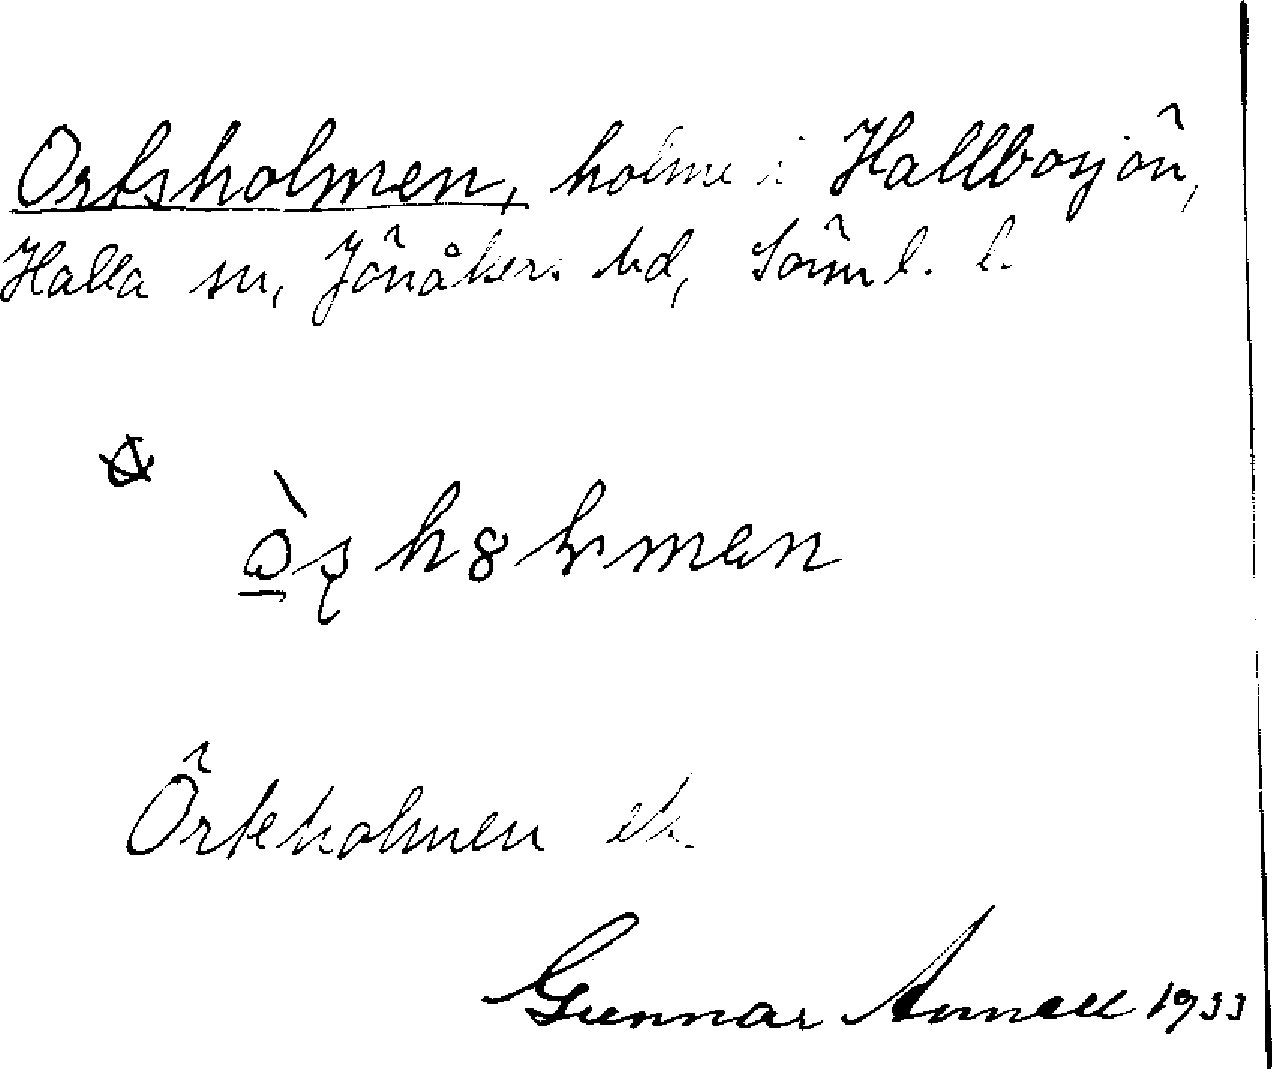 Ortsholmen, holme i Hallbosjön,
Halla sn, Jönåkers hd, Sörml. l.
Örteholmen ek.
Gunnar Annell 1933